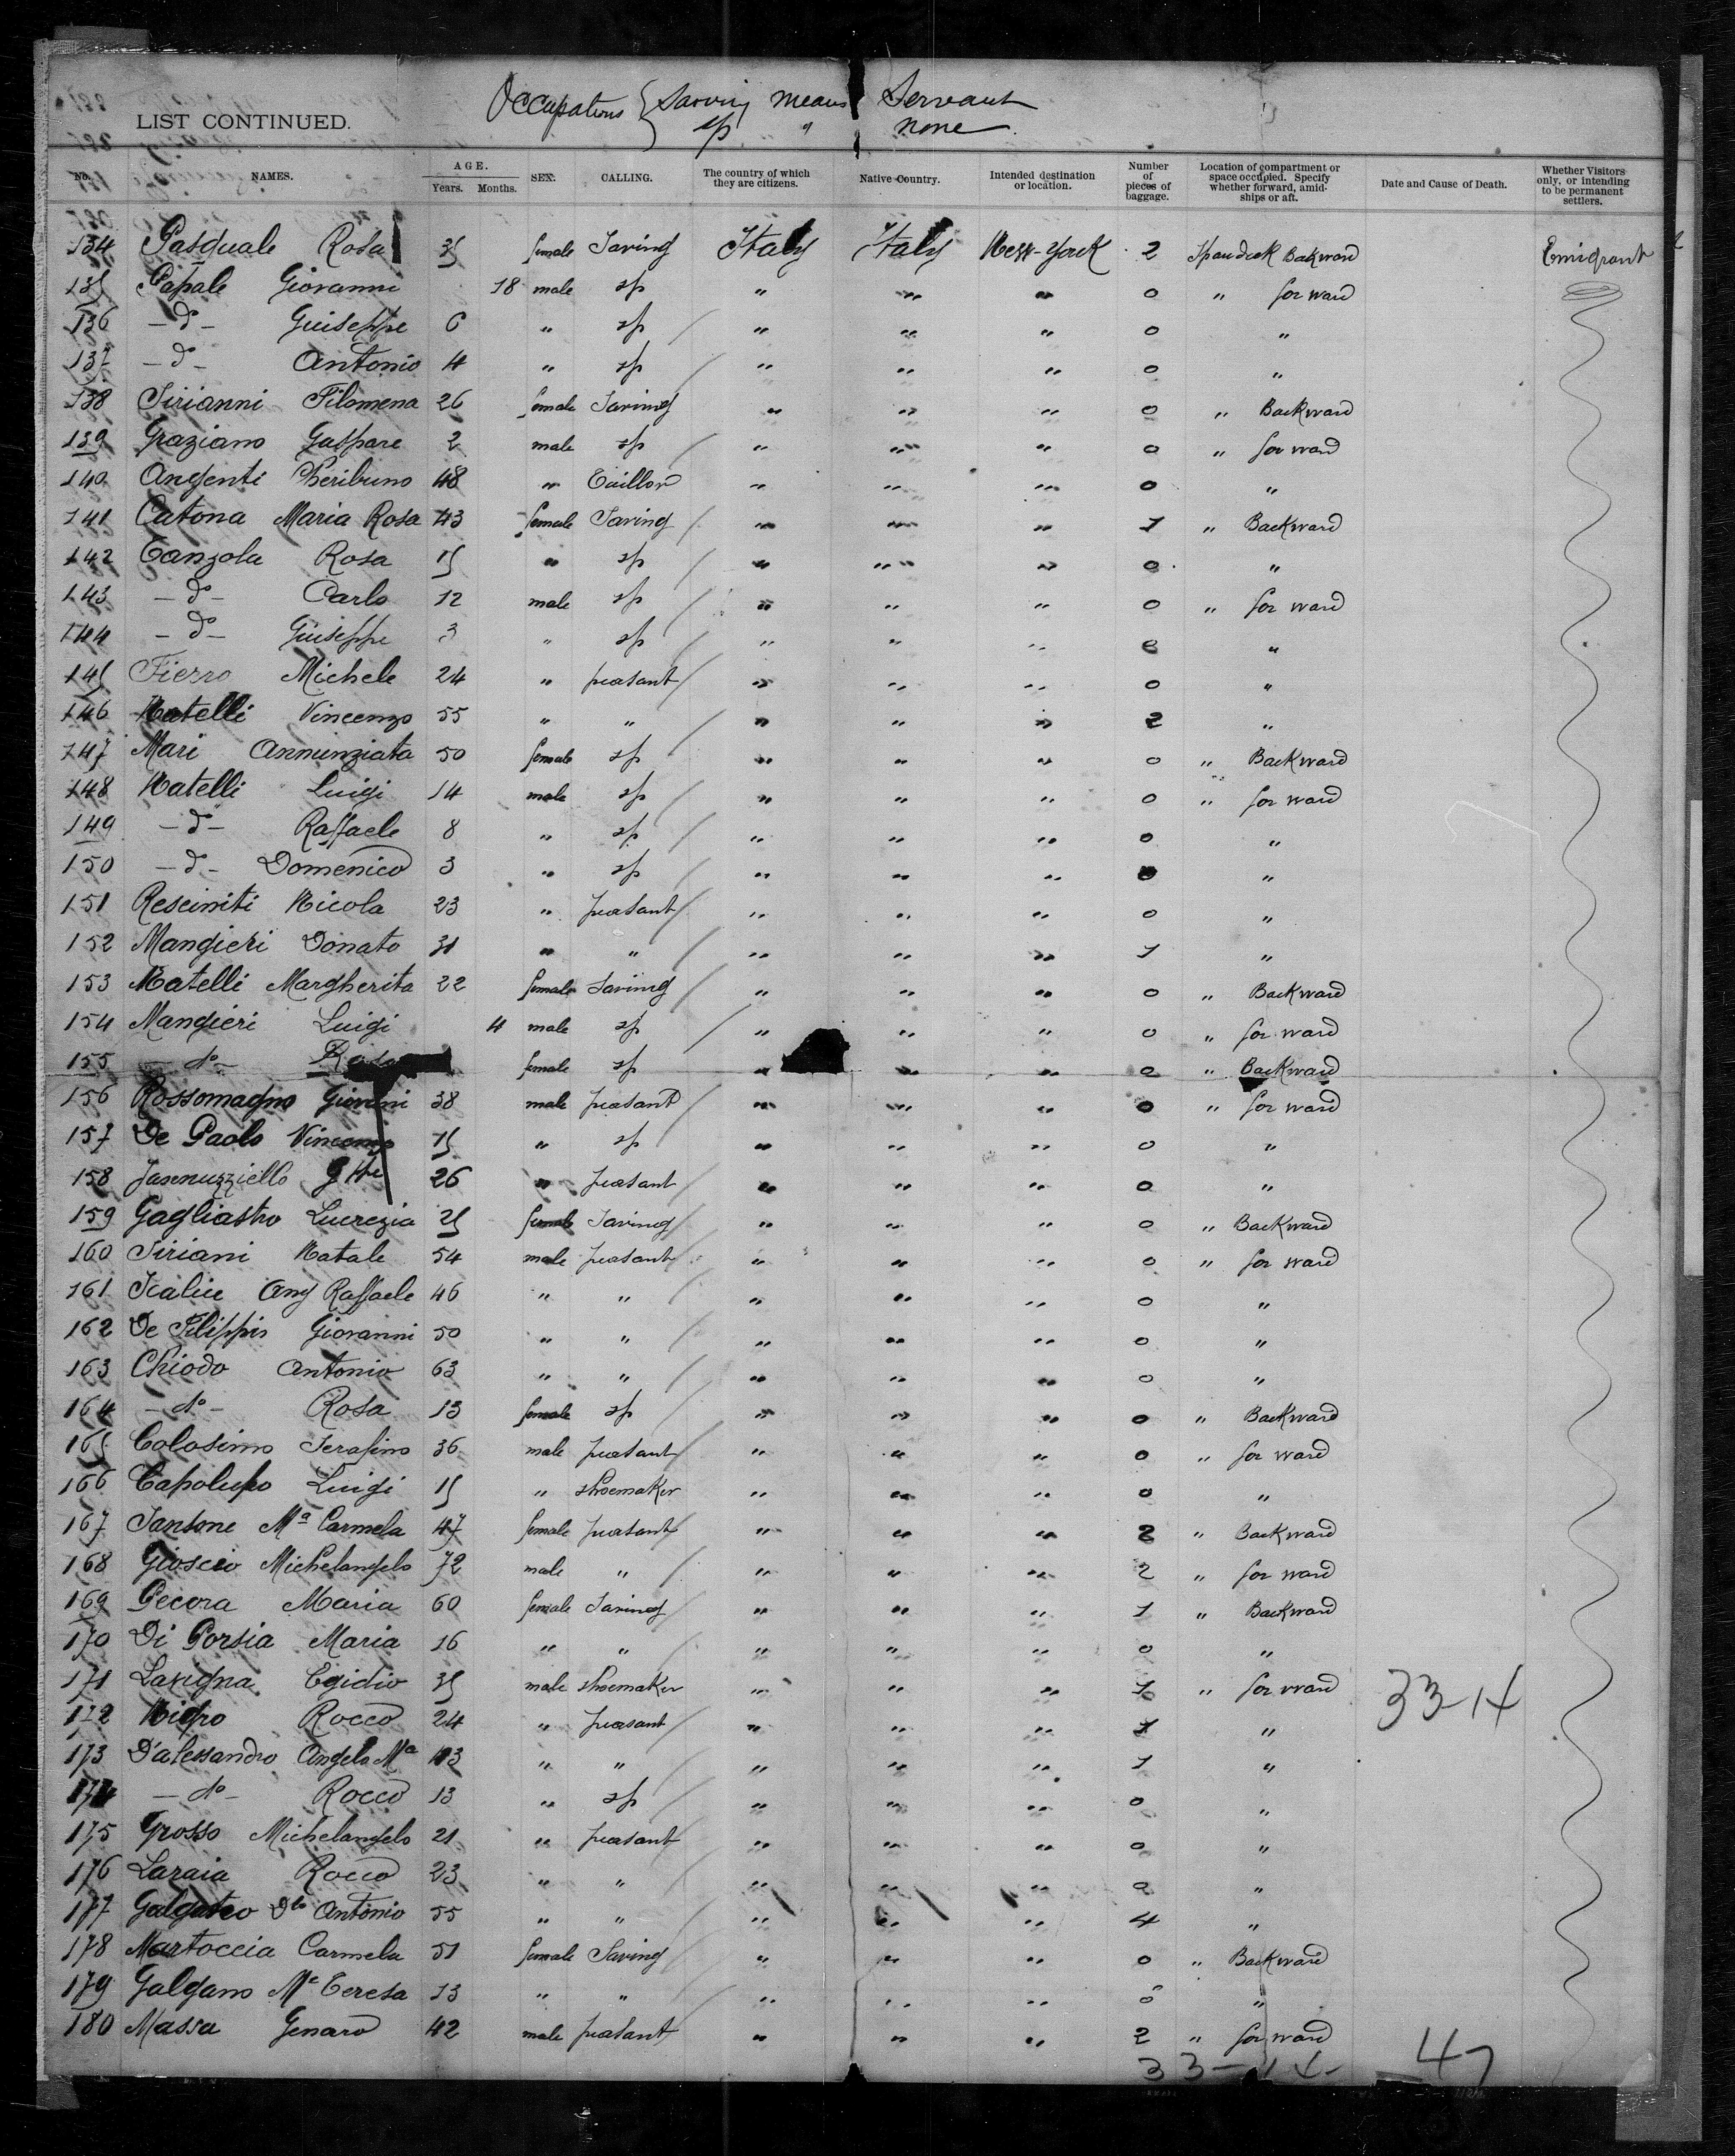 Occupations { Saving means Servant
sp " none
LIST CONTINUED.
No. NAMES. AGE. Years. Months. SEX. CALLING. The country of which they are citizens. Native Country. Intended destination or location. Number of pieces of baggage. Location of compartment or space occupied. Specify whether forward, amidships or aft. Date and Cause of Death. Whether Visitors only, or intending to be permanent settlers.
134 Pasquale Rosa 35 female Saving Italy Italy New-York 2 Spardeck Backward Emigrant
135 Papale Giovanni 18 male sp " " " 0 " for ward
136 -do- Guiseppe 6 " sp " " " 0 "
137 -do- Antonio 4 " sp " " " 0 "
138 Sirianni Filomena 26 female Saving " " " 0 " Backward
139 Graziano Gaspare 2 male sp " " " 0 " for ward
140 Angenti 48 " Taillor " " " 0 "
141 Catona Maria Rosa 43 female Saving " " " 1 " Backward
142 Canzola Rosa 15 " sp " " " 0 "
143 -do- Carlo 12 male sp " " " 0 " for ward
144 -do- Guiseppe 3 " sp " " " 0 "
145 Fierro Michele 24 " peasant " " " 0 "
146 Natelli Vincenzo 55 " " " " " 2 "
147 Mari Annunziata 50 female sp " " " 0 " Backward
148 Natelli Luigi 14 male sp " " " 0 " for ward
149 -do- Raffaele 8 " sp " " " 0 "
150 -do- Domenico 3 " sp " " " 0 "
151 Resciniti Nicola 23 " peasant " " " 0 "
152 Mangieri Donato 31 " " " " " 1 "
153 Natelli Margherita 22 female Saving " " " 0 " Backward
154 Mangieri Luigi 4 male sp " " " 0 " for ward
155 -do- Rosa female sp " " " 0 " Backward
156 Rossomagno Giovani 38 male peasant " " " 0 " for ward
157 De Paolo Vincenzo 15 " sp " " " 0 "
158 Jannuzziello Gppe 26 " peasant " " " 0 "
159 Gagliastro Lucrezia 25 female Saving " " " 0 " Backward
160 Siriani Natale 54 male peasant " " " 0 " for ward
161 Scalice Ang Raffaele 46 " " " " " 0 "
162 De Filippis Giovanni 50 " " " " " 0 "
163 Chiodo Antonio 63 " " " " " 0 "
164 -do- Rosa 13 female sp " " " 0 " Backward
165 Colosimo Serafino 36 male peasant " " " 0 " for ward
166 Capolupo Luigi 15 " shoemaker " " " 0 "
167 Sansone Ma Carmela 47 female peasant " " " 2 " Backward
168 Gioscio Michelangelo 72 male " " " " 2 " for ward
169 Pecora Maria 60 female Saving " " " 1 " Backward
170 Di Porsia Maria 16 " " " " " 0 "
171 Lavigna Egidio 35 male shoemaker " " " 1 " for ward 33-14
172 Nigro Rocco 24 " peasant " " " 1 "
173 D'alessandro Angelo Ma 43 " " " " " 1 "
174 -do- Rocco 13 " sp " " " 0 "
175 Grosso Michelangelo 21 " peasant " " " 0 "
176 Laraia Rocco 23 " " " " " 0 "
177 Dto Antonio 55 " " " " " 4 "
178 Martoccia Carmela 51 female Saving " " " 0 " Backward
179 Galgano Ma Teresa 13 " " " " " 0 "
180 Massa Genaro 42 male peasant " " " 2 " for ward
33-14- 47